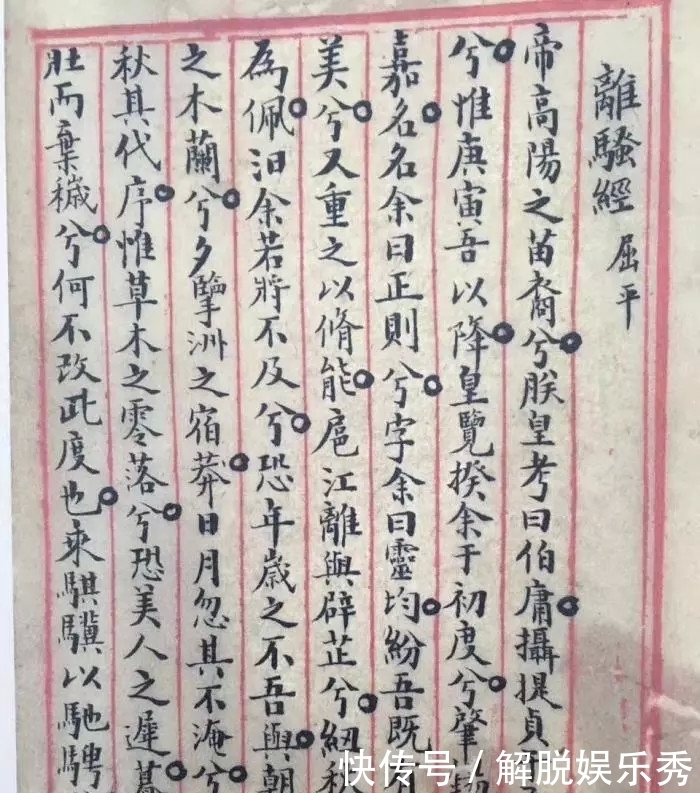 離騷經 屈平
帝高陽之苗裔兮朕皇考曰伯庸攝提貞
兮惟庚寅吾以降皇覽揆余于初度兮肇
嘉名名余曰正則兮字余曰靈均紛吾既
美兮又重之以脩能扈江離與辟芷兮紉
為佩汩余若將不及兮恐年歲之不吾與朝
之木蘭兮夕擥洲之宿莽日月忽其不淹兮
秋其代序惟草木之零落兮恐美人之遲暮
壯而棄穢兮何不改此度也乘騏驥以馳騁
快传号 / 解脱娱乐秀